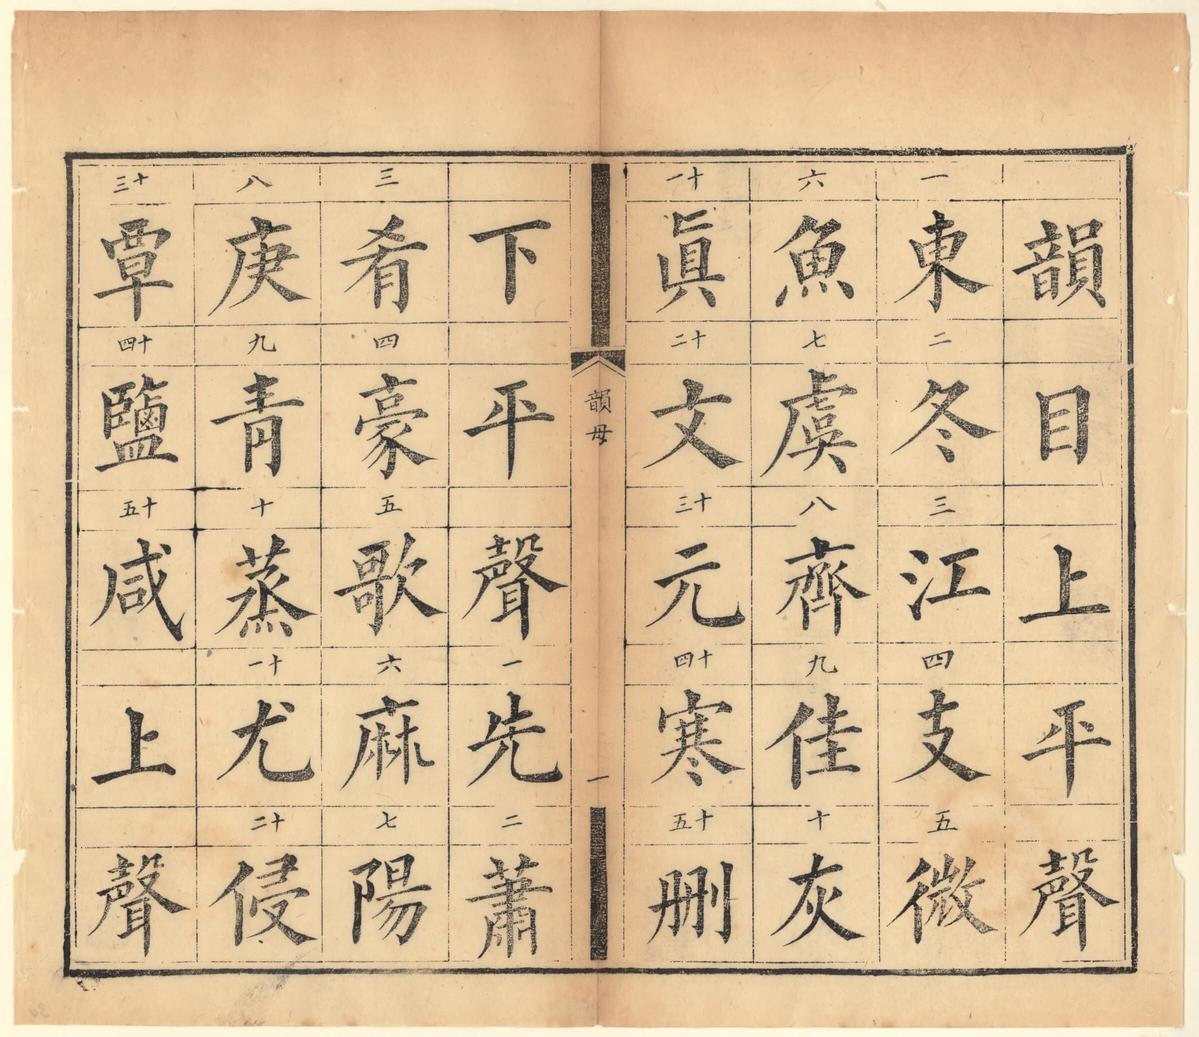 韻目上平聲
一東二冬三江四支五微
六魚七虞八齊九佳十灰
十一眞十二文十三元十四寒十五刪
韻母
一
下平聲一先二蕭
三肴四豪五歌六麻七陽
八庚九青十蒸十一尤十二侵
十三覃十四鹽十五咸上聲